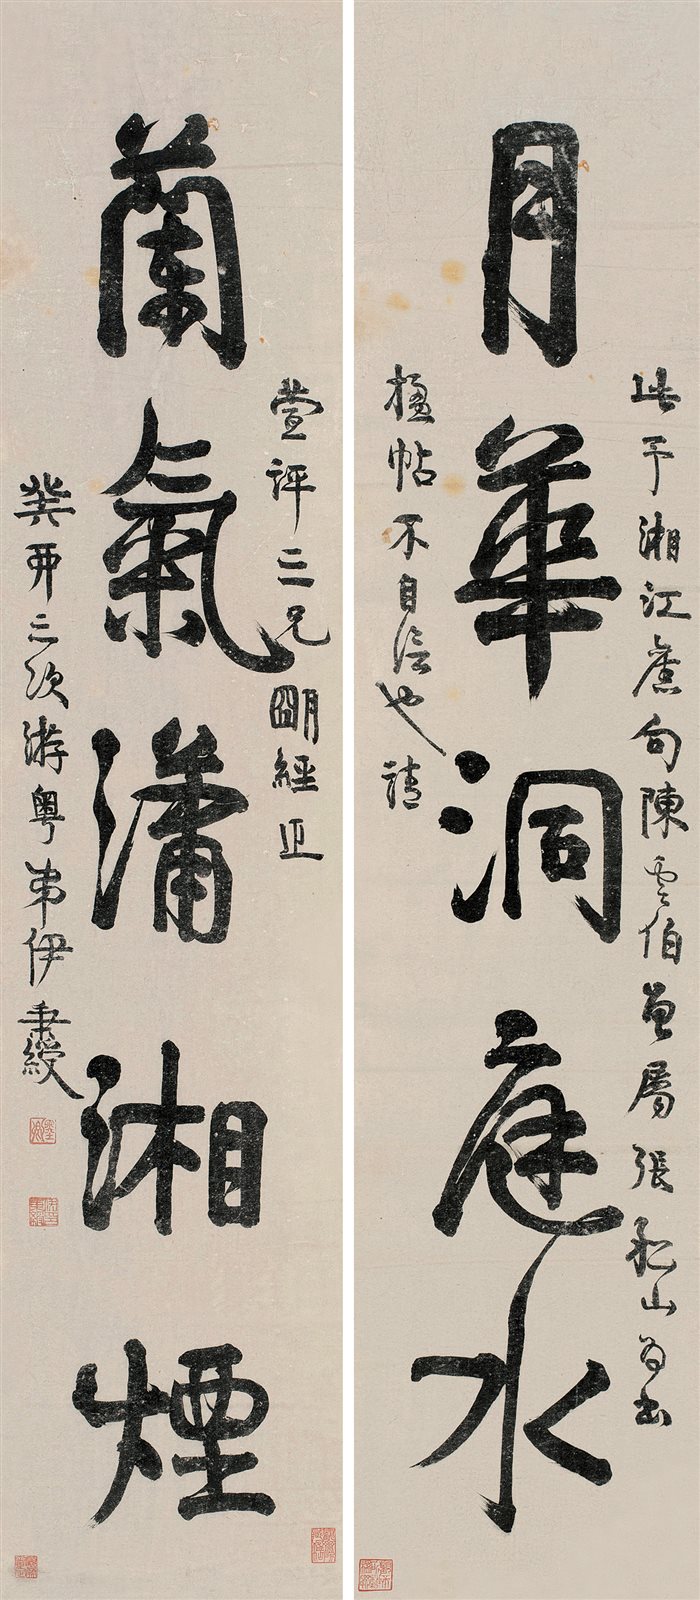 月華洞庭水
此予湘江舊句陳雲伯曾屬張船山為書
楹帖不自信也請
蘭氣瀟湘煙
萱評三兄明經正
癸酉三次游粵弟伊秉綬